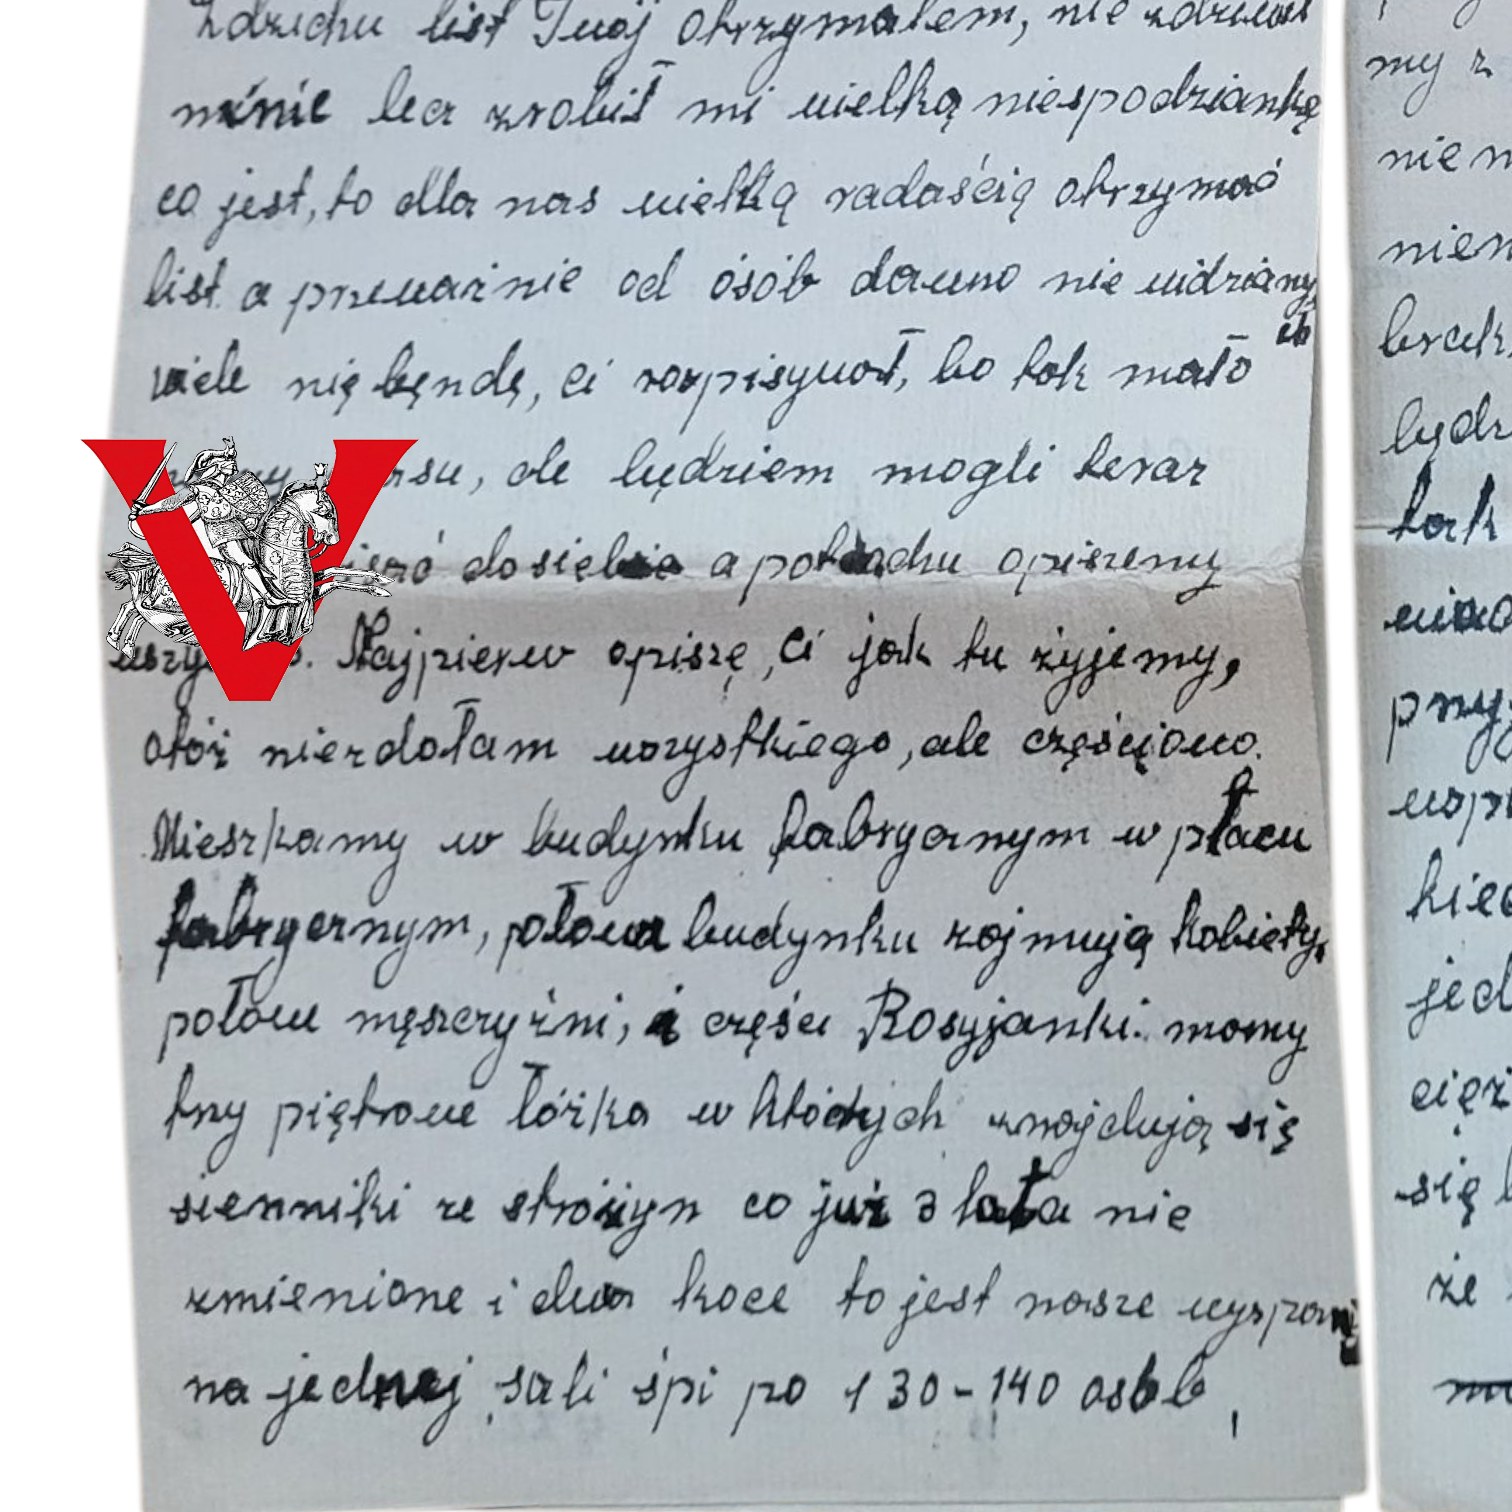 Zdzichu list Twój otrzymałem, nie zdziwił
mnie lecz zrobił mi wielką niespodziankę
co jest, to dla nas wielką radaścią otrzymać
list a przeważnie od ósób dawno nie widziany
ch
wiele nię bęndę, ci rozpisywał, bo tak mało
ale będziem mogli teraz
do siebie a potrochu opiszemy
Najpierw opiszę, ci jak tu żyjemy,
otóż niezdołam wszystkiego, ale częściowo.
Mieszkamy w budynku fabrycznym w płacu
fabrycznym, połowa budynku zajmują kobiety,
połowe męszczyźni, i część Rosyjanki. mamy
trzy piętrowe łóżka w których znajdują się
sienniki ze strożyn co już 3 lata nie
zmienione i dwa koce to jest nasze
na jednej sali śpi po 130-140 osób,
my z
nie
tak
kie
jed
się
że
V